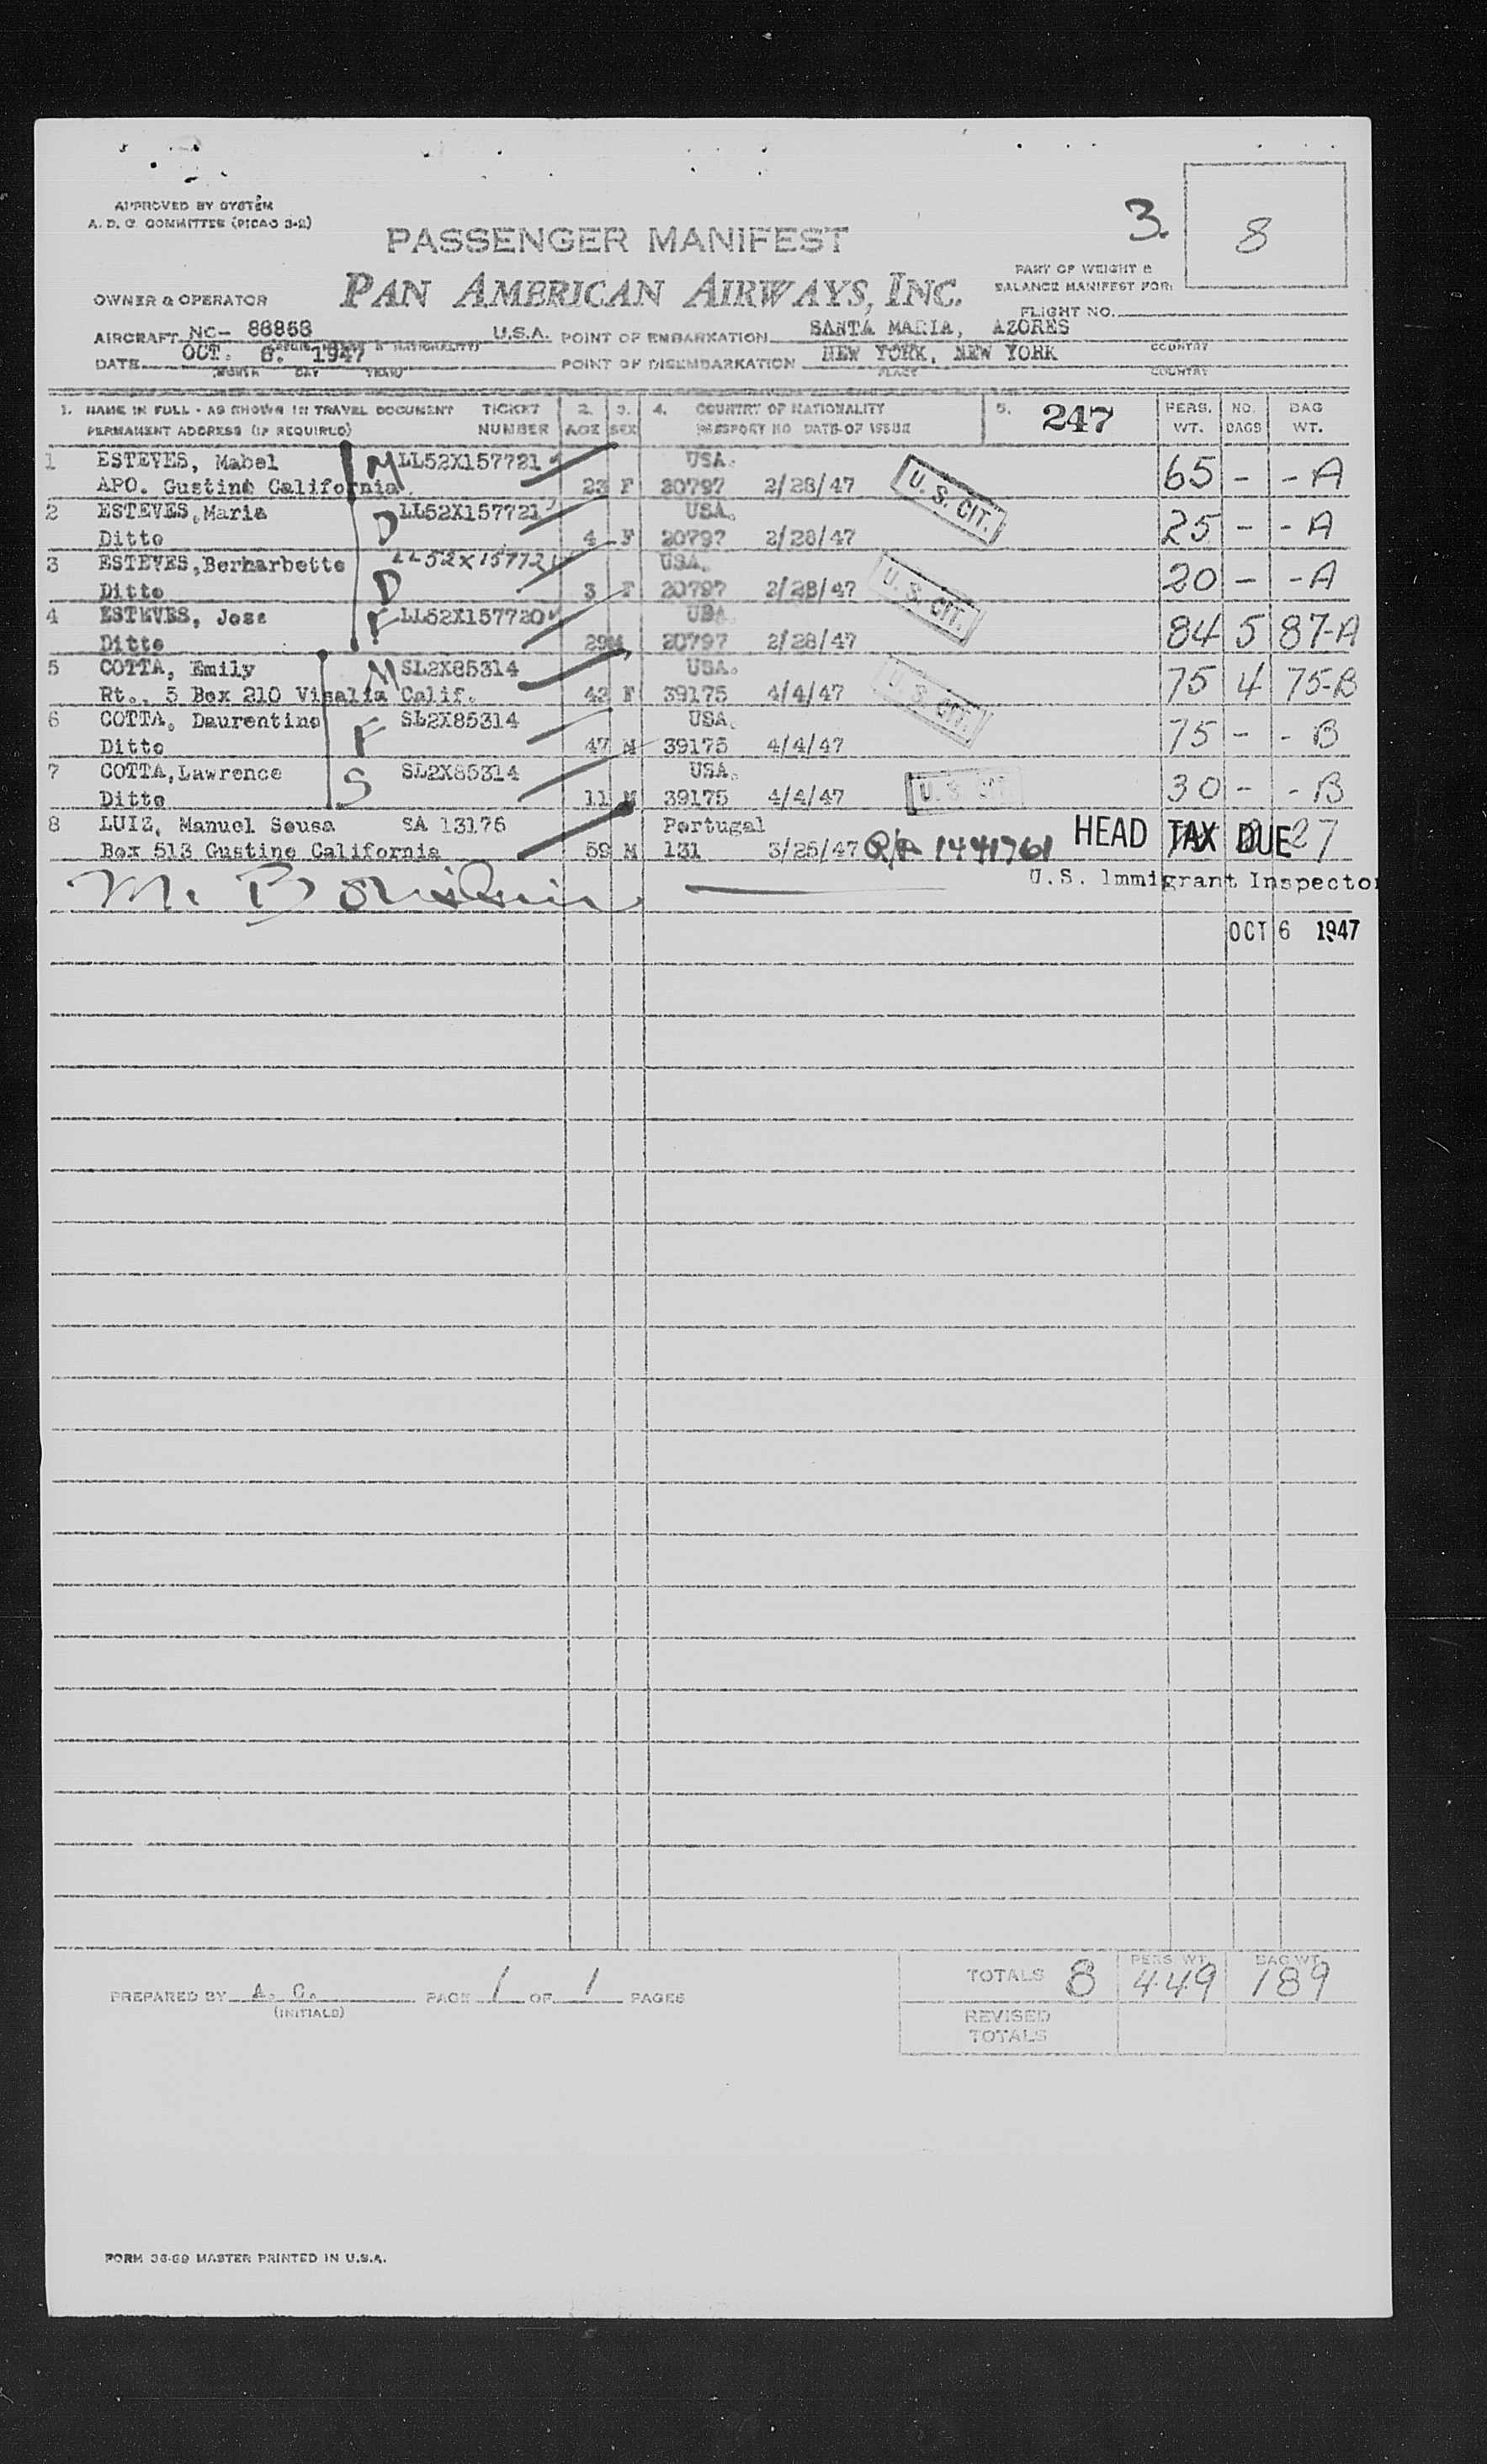 APPROVED BY SYSTEM
A. D. C. COMMITTEE (PICAO 3-2)
3.
8
PASSENGER MANIFEST
PART OF WEIGHT &
BALANCE MANIFEST FOR:
PAN AMERICAN AIRWAYS, INC.
OWNER & OPERATOR
FLIGHT NO.
AIRCRAFT NC- 88868 U.S.A. POINT OF EMBARKATION SANTA MARIA, AZORES
COUNTRY
DATE OCT. 6. 1947 POINT OF DISEMBARKATION NEW YORK, NEW YORK
MONTH DAY YEAR PLACE COUNTRY
1. NAME IN FULL - AS SHOWN IN TRAVEL DOCUMENT TICKET 2. 3. 4. COUNTRY OF NATIONALITY 5. 247 PERS. NO. BAG
PERMANENT ADDRESS (IF REQUIRED) NUMBER AGE SEX PASSPORT NO DATE OF ISSUE WT. BAGS WT.
1 ESTEVES, Mabel M LL52X157721 USA.
APO. Gustine California 23 F 20797 2/28/47 U.S. CIT. 65 - - A
2 ESTEVES, Maria D LL52X157721 USA.
Ditto 4 F 20797 2/28/47 25 - - A
3 ESTEVES, Berharbette LL52X157721 USA.
Ditto D 3 F 20797 2/28/47 U.S. CIT. 20 - - A
4 ESTEVES, Jose F LL52X157720 USA
Ditto 29 M 20797 2/28/47 84 5 87-A
5 COTTA, Emily M SL2X85314 USA.
Rt., 5 Box 210 Visalia Calif. 42 F 39175 4/4/47 U.S. CIT. 75 4 75-B
6 COTTA, Daurentino F SL2X85314 USA.
Ditto 47 M 39175 4/4/47 75 - - B
7 COTTA, Lawrence S SL2X85314 USA.
Ditto 11 M 39175 4/4/47 U.S. CIT. 30 - - B
8 LUIZ, Manuel Sousa SA 13176 Portugal HEAD TAX DUE 27
Box 513 Gustine California 59 M 131 3/25/47 R/P 1441761
U.S. Immigrant Inspector
OCT 6 1947
PREPARED BY A. C. PAGE 1 OF 1 PAGES
(INITIALS)
TOTALS 8 PERS WT. 449 BAG WT. 189
REVISED
TOTALS
FORM 36-69 MASTER PRINTED IN U.S.A.